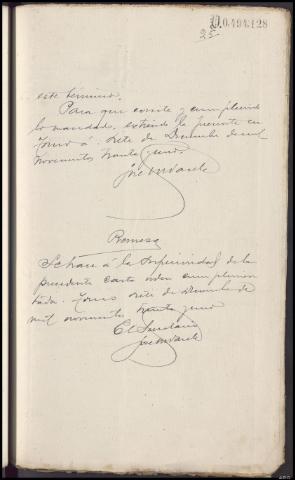 D.0.494.128
25
este término.
Para que conste y cumpliendo
lo mandado, extiendo la presente en
á siete de Diciembre de mil
novecientos treinta y uno.
José
Remesa
á la Superioridad de la
precedente carta orden cumplimen
tada. siete de Diciembre de
mil novecientos treinta y uno
El Secretario
José